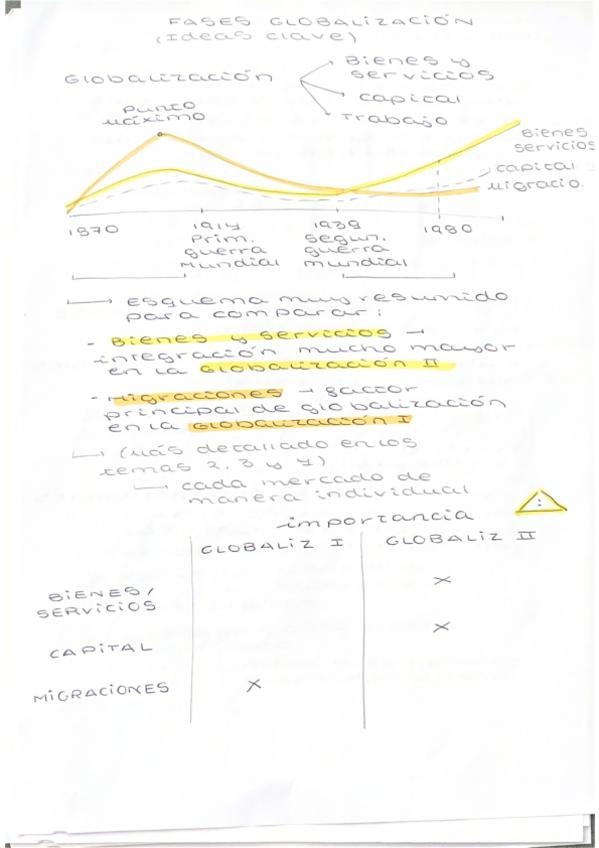 FASES GLOBALIZACIÓN
(Ideas clave)
Globalización
Bienes y
servicios
capital
Trabajo
Punto
máximo
Bienes
servicios
capital
Migracio.
1870
1914
Prim.
guerra
Mundial
1939
Segun.
guerra
mundial
1980
Esquema muy resumido
para comparar:
- Bienes y servicios →
integración mucho mayor
en la Globalización II
- Migraciones → factor
principal de globalización
en la Globalización I
(más detallado en los
temas 2, 3 y 4)
cada mercado de
manera individual
!
importancia
GLOBALIZ I
GLOBALIZ II
BIENES/
SERVICIOS
x
CAPITAL
x
MIGRACIONES
x